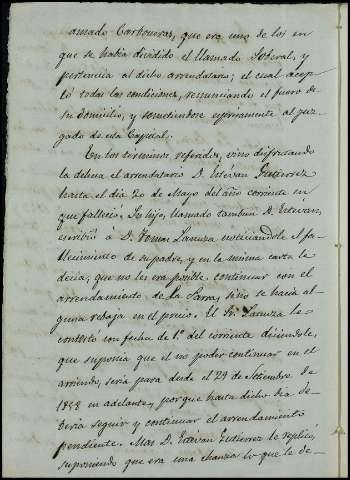 amado Carboneras, que era uno de los en
que se habia dividido el llamado Soberal, y
pertenecia al dicho arrendatario; el cual acep-
tó todas las condiciones, renunciando el fuero de
su domicilio, y sometiendose espresamente al juz-
gado de esta Capital.
En los terminos referidos, vino disfrutando
la dehesa el arrendatario D. Estevan Gutierrez
hasta el dia 20 de Mayo del año corriente en
que falleció. Su hijo, llamado tambien D. Estevan,
escribió á D. Tomas Lanuza noticiandole el fa-
llecimiento de su padre, y en la misma carta le
decia, que no les era posible continuar con el
arrendamiento de la Sarra, si no se hacia al-
guna rebaja en el precio. El Sr. Lanuza le
contestó con fecha de 1º del corriente diciendole,
que suponia que el no poder continuar en el
arriendo, seria para desde el 29 de Setiembre de
1858 en adelante, porque hasta dicho dia de-
beria seguir y continuar el arrendamiento
pendiente. Mas D. Estevan Gutierrez le replicó,
suponiendo que era una chanza lo que le de-